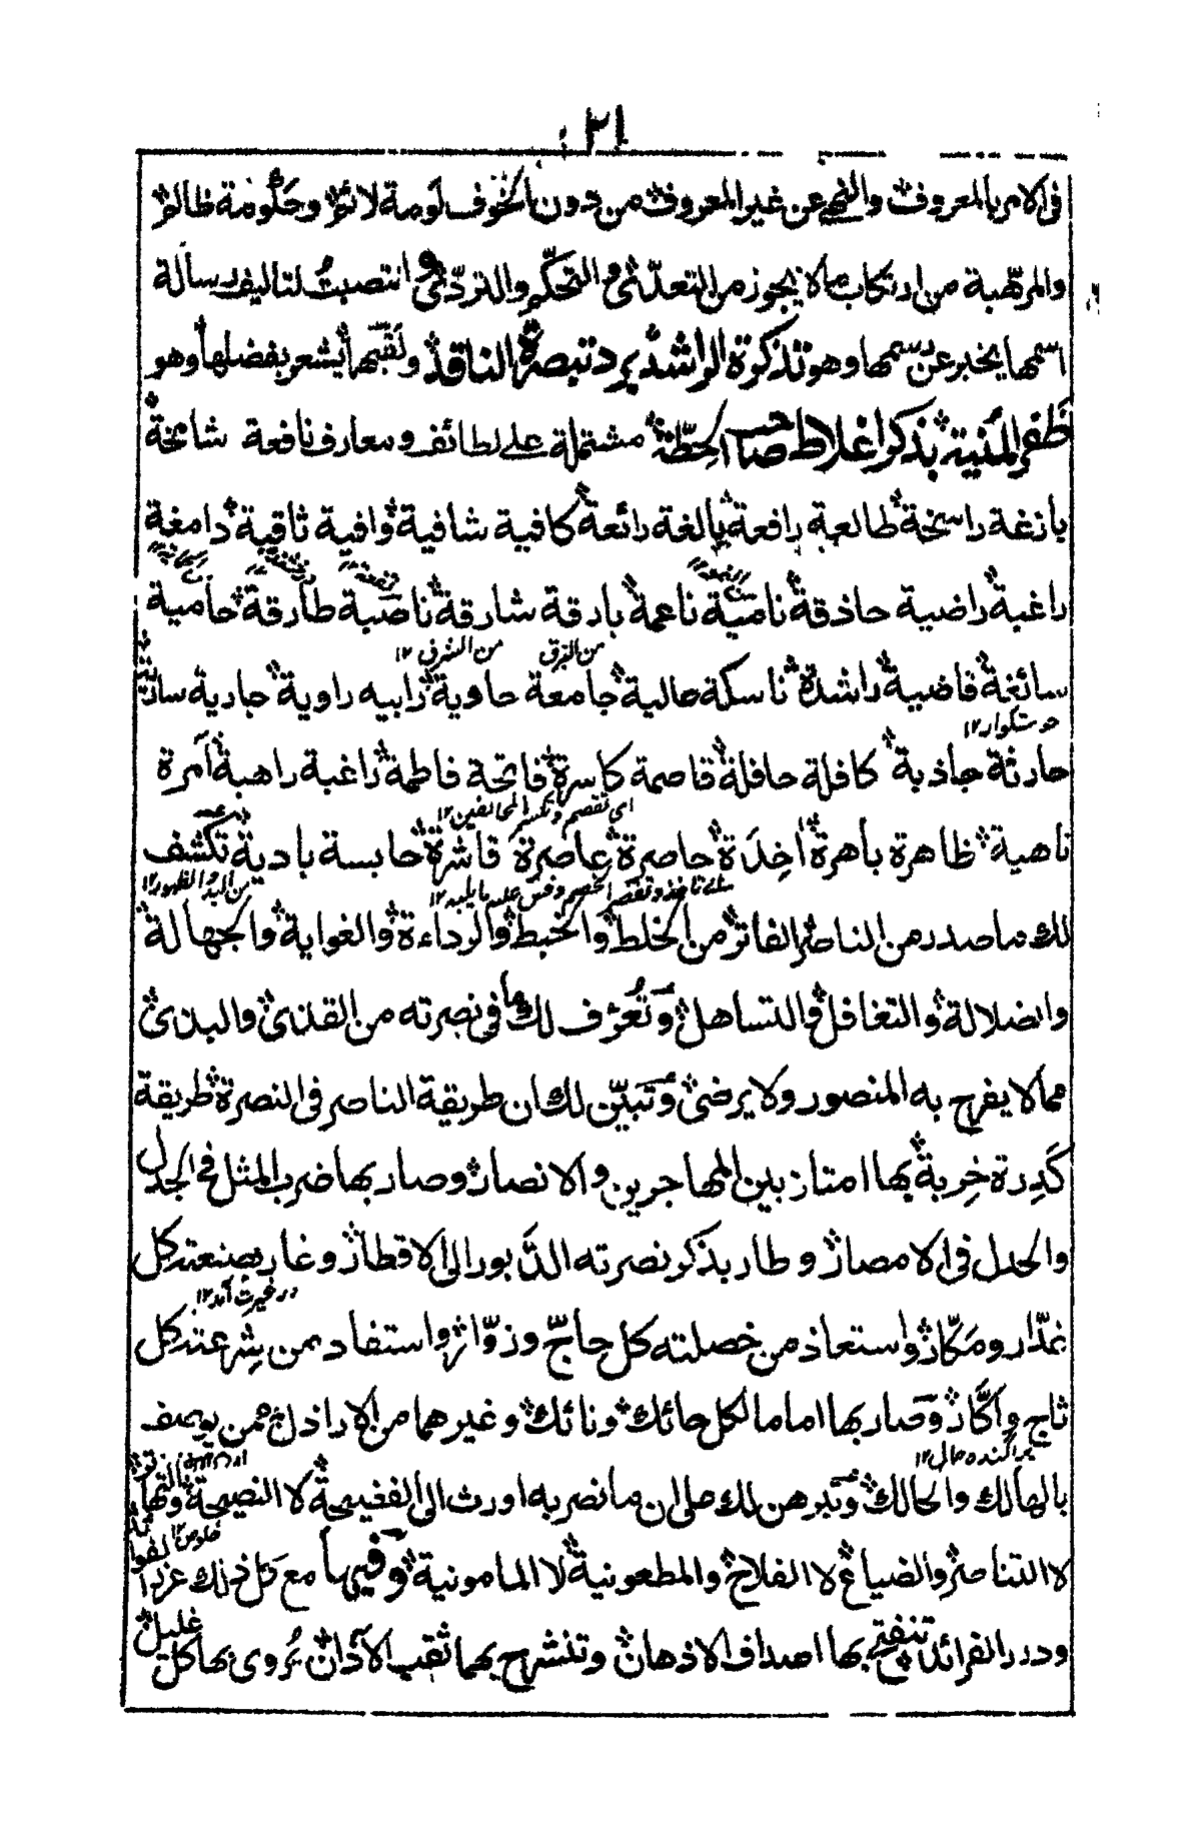 ٢١
فى الامر بالمعروف والنهى عن غير المعروف من دون الخوف لومة لائم وحكومة ظالم
والمرتهبة من ارتكاب ما لا يجوز من التعدّى والتحكّم والتردّى انتصبت لتاليف رسالة
اسمها يخبر عن رسمها وهو تذكرة الراشد برد تبصرة الناقد ولقبها يشعر بفضلها وهو
ظفر المنية بذكر اغلاط صاحب الحطّة مشتملة على لطائف ومعارف نافعة شامخة
بازغة راسخة طالعة رافعة بالغة رائعة كافية شافية وافية ثاقبة دامغة
راغبة راضية حاذقة نامية ناعمة بارقة شارقة ناصبة طارقة حامية
من البرق من الشرق ١٢
سائغة قاضية راشدة ناسكة عالية جامعة حاوية رابيه راوية جارية
خوشگوار ١٢
حارثة جاذبة كافلة حافلة قاصمة كاسرة فاتحة فاطمة راغبة راهبة آمرة
اى تقصم وتكسر المخالفين ١٢
ناهية ظاهرة باهرة اٰخِذَة حاصرة عاصرة قاشرة حابسة بادية تكشف
من البدو الظهور ١٢
لك ما صدر من الناصر الفاتر من الخلط والخبط والرداءة والغواية والجهالة
والضلالة والتغافل والتساهل وتُعرّف لك ما فى نصرته من القذى والبذى
مما لا يفرح به المنصور ولا يرضى وتبيّن لك ان طريقة الناصر فى النصرة طريقة
كَدِرة خِربة بها امتاز بين المهاجرين والانصار وصار بها ضرب المثل فى الجدل
والحلل فى الامصار وطار بذكر نصرته الدَّبور الى الاقطار وغار بصنعته كل
در غيرت آمد ١٢
غدّار ومَكّار واستعاذ من خصلته كل حاجّ وزوّار واستفاد بمن شرعته كل
ثاج واكّار وصار بها اماما لكل حائك ونائك وغيرهما من الاراذل ممن يوصف
بالهالك والحالك وتبرهن لك على ان ما نصر به اورث الى الفضيحة لا النصيحة
لا التناصر والضياع لا الفلاح والمطعونية لا المامونية وفيها مع كل ذلك غرر
ودرر الفرائد تنفتح بها اصداف الاذهان وتنشرح بها ثقب الآذان يُروى بها كل غليل